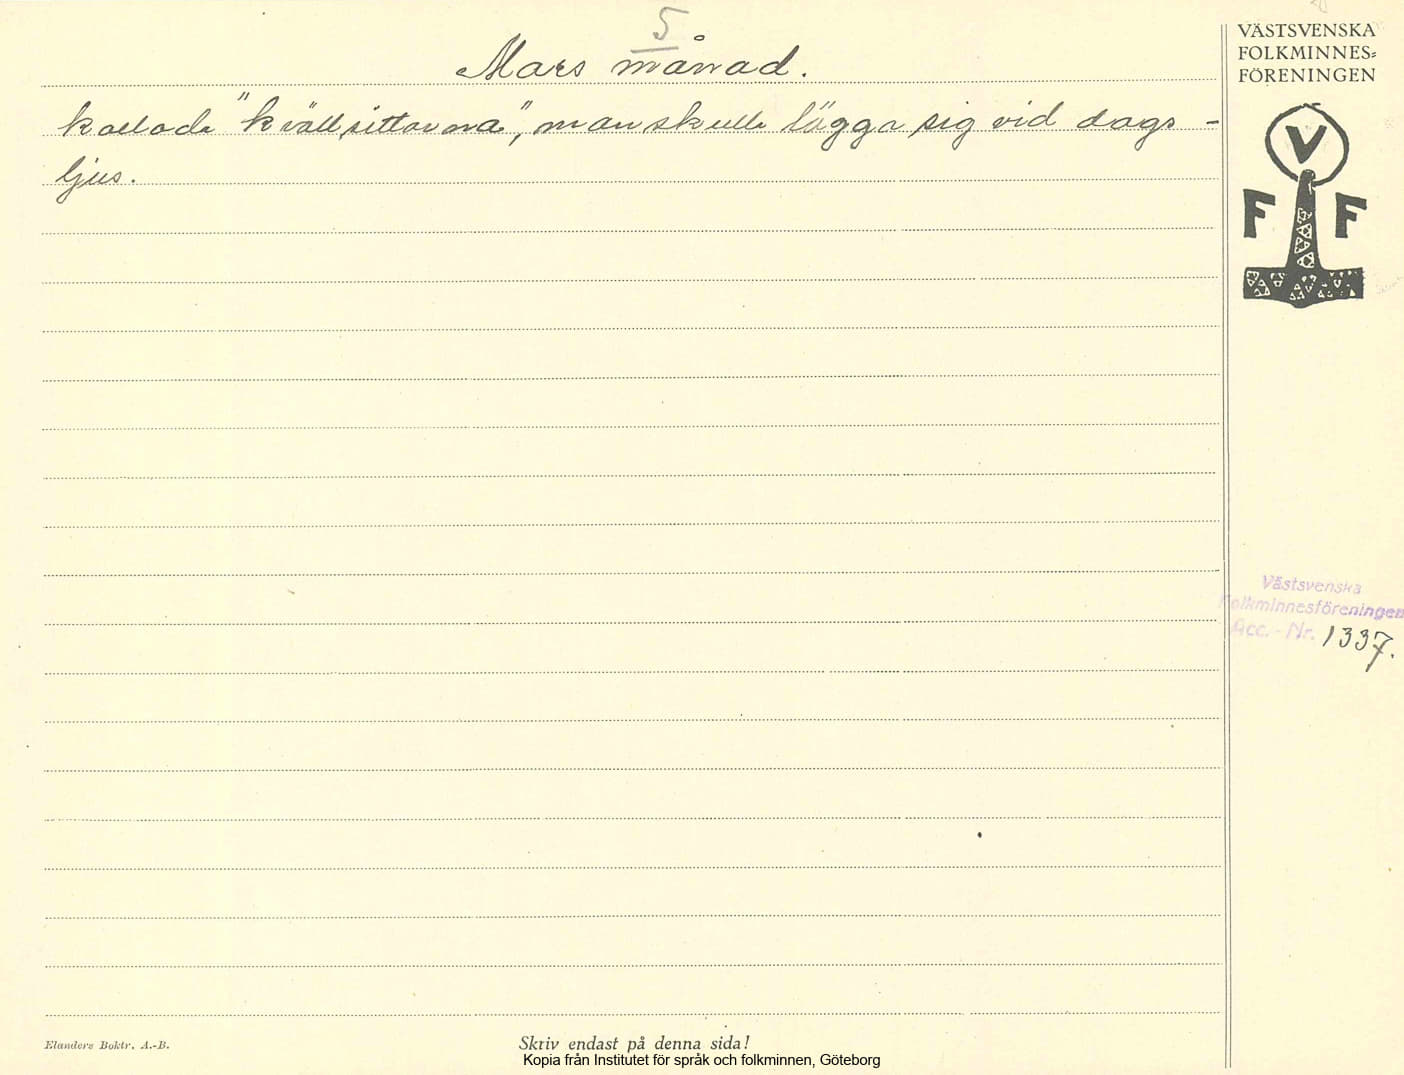 5
Mars månad.
kallade "kvällsittarna", man skulle lägga sig vid dags-
ljus.
VÄSTSVENSKA
FOLKMINNES=
FÖRENINGEN
V
F F
Västsvenska
Folkminnesföreningen
Acc. - Nr. 1337.
Elanders Boktr. A.-B.
Skriv endast på denna sida!
Kopia från Institutet för språk och folkminnen, Göteborg